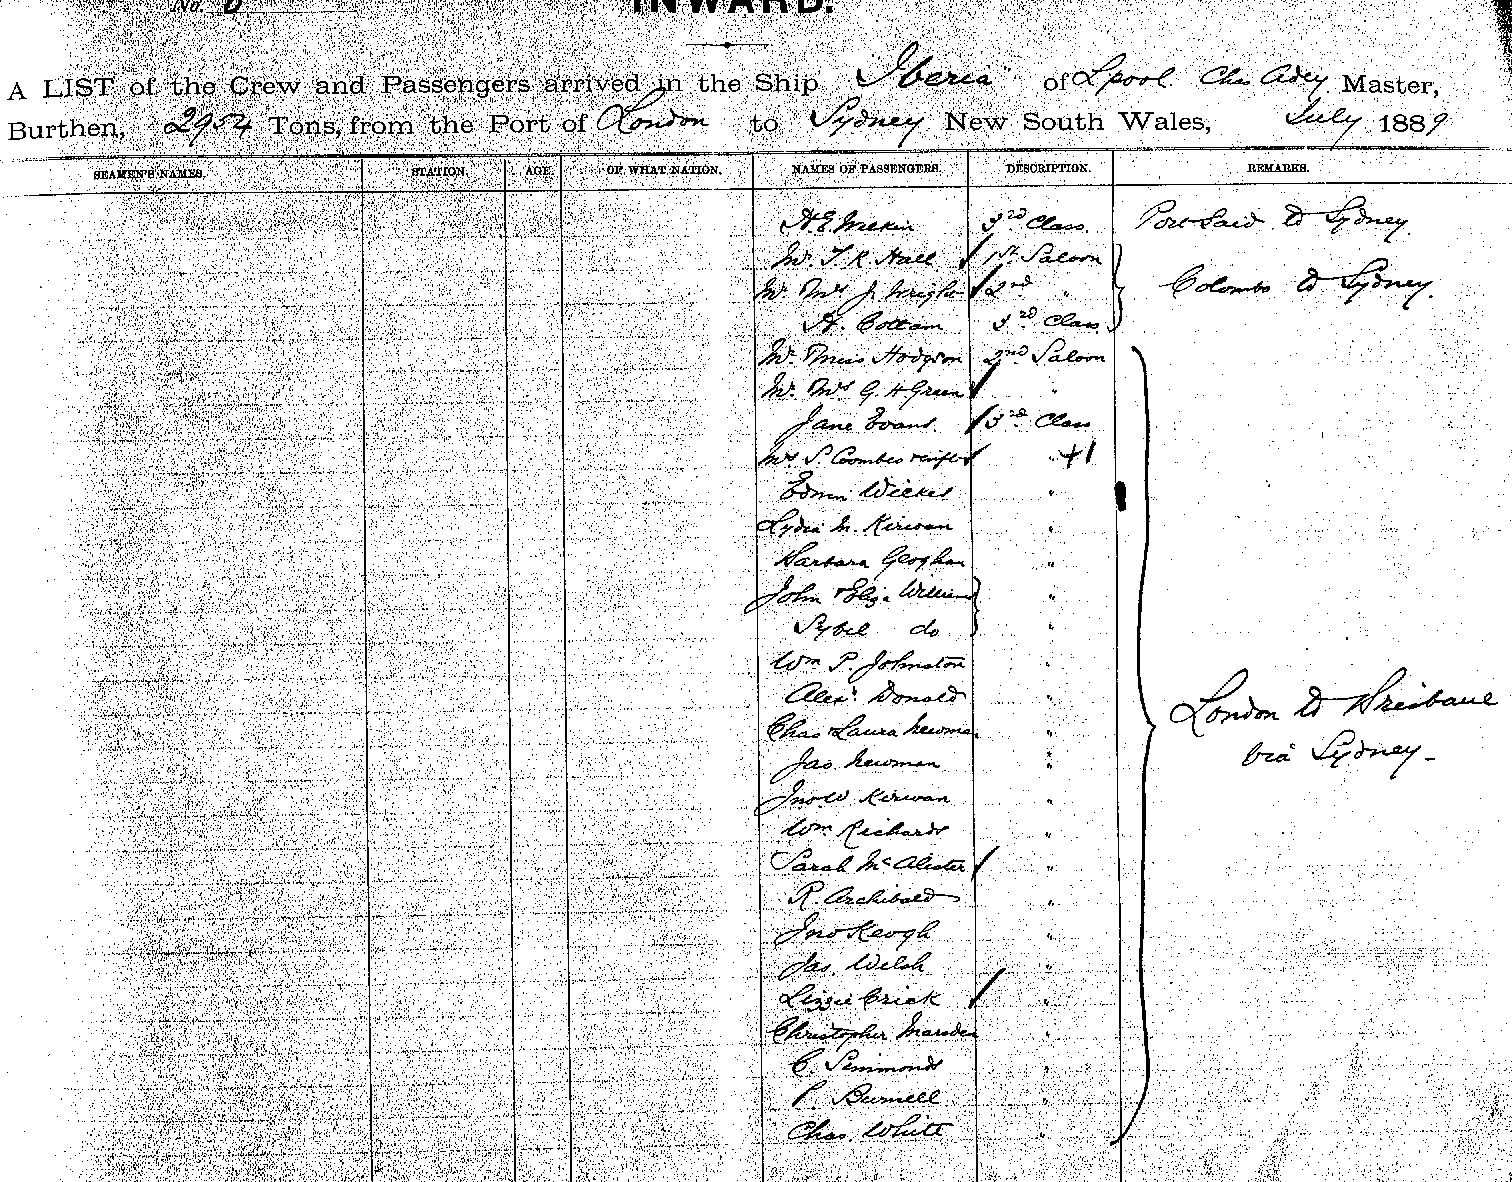 No. 6
INWARD.
A LIST of the Crew and Passengers arrived in the Ship "Iberia" of Lpool. Chas Adey Master,
Burthen, 2954 Tons, from the Port of London to Sydney New South Wales, July 1889
SEAMEN'S NAMES. STATION. AGE. OF WHAT NATION. NAMES OF PASSENGERS. DESCRIPTION. REMARKS.
A E Meekin 3rd Class. Port Said to Sydney.
Mr. T. R. Hall 1st Saloon
Mr. Mrs J. Wright 2nd " Colombo to Sydney.
A. Cottam 3rd Class.
Mr. Miss Hodgson 2nd Saloon
Mr. Mrs G. H Green "
Jane Evans. 3rd Class
Mrs S. Coombes + inft " +1
Edwin Wickes "
Lydia M. Kirwan "
Barbara Geoghan "
John + Eliza Williams "
Sybil do "
Wm P. Johnston "
Alexr Donald "
Chas + Laura Newman "
Jas. Newman "
Jno W Kirwan "
Wm. Richards "
Sarah McAlister "
R. Archibald "
London to Brisbane
via Sydney -
Jno Keogh "
Jas. Welsh "
Lizzie Crick "
Christopher Marsden "
C. Simmonds "
P. Burnell "
Chas. White "